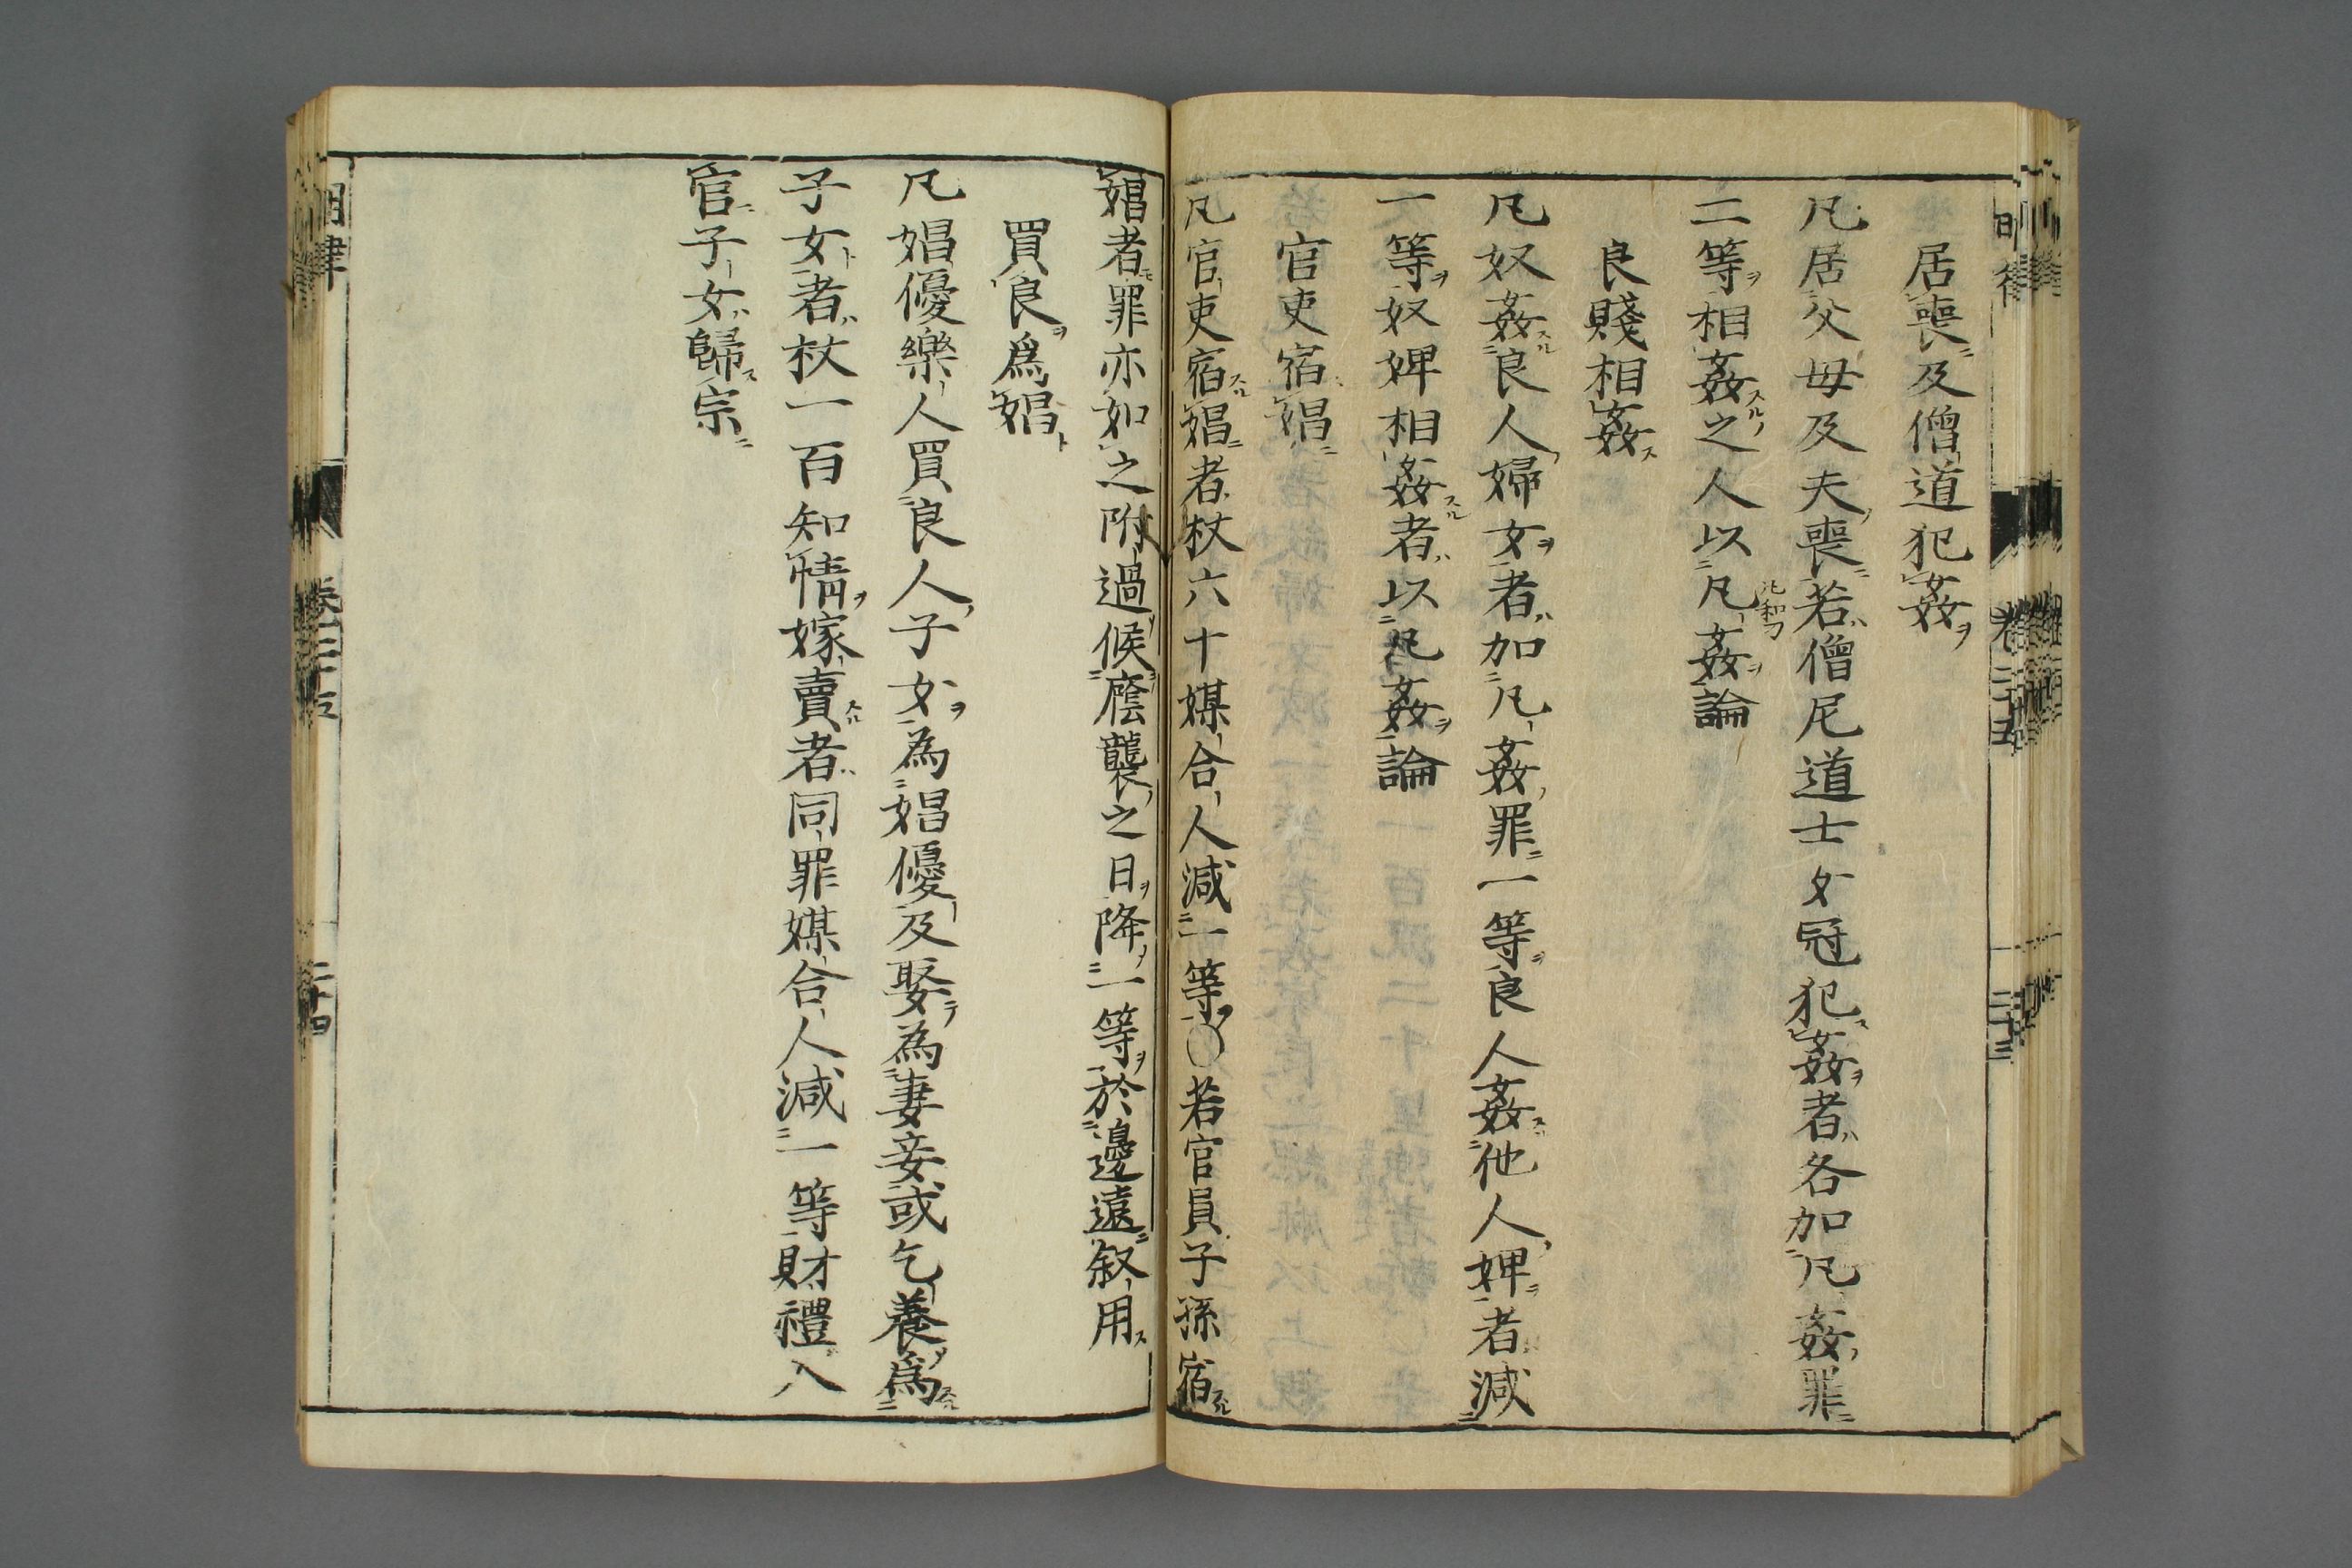 居喪及僧道犯姦
凡居父母及夫喪若僧尼道士女冠犯姦者各加凡姦罪
二等相姦之人以凡姦論
良賤相姦
凡奴姦良人婦女者加凡姦罪一等良人姦他人婢者減
一等奴婢相姦者以凡姦論
官吏宿娼
凡官吏宿娼者杖六十媒合人減一等〇若官員子孫宿
娼者罪亦如之附過候廕襲之日降一等於邊遠叙用
買良爲娼
凡娼優樂人買良人子女為娼優及娶為妻妾或乞養爲
子女者杖一百知情嫁賣者同罪媒合人減一等財禮入
官子女歸宗